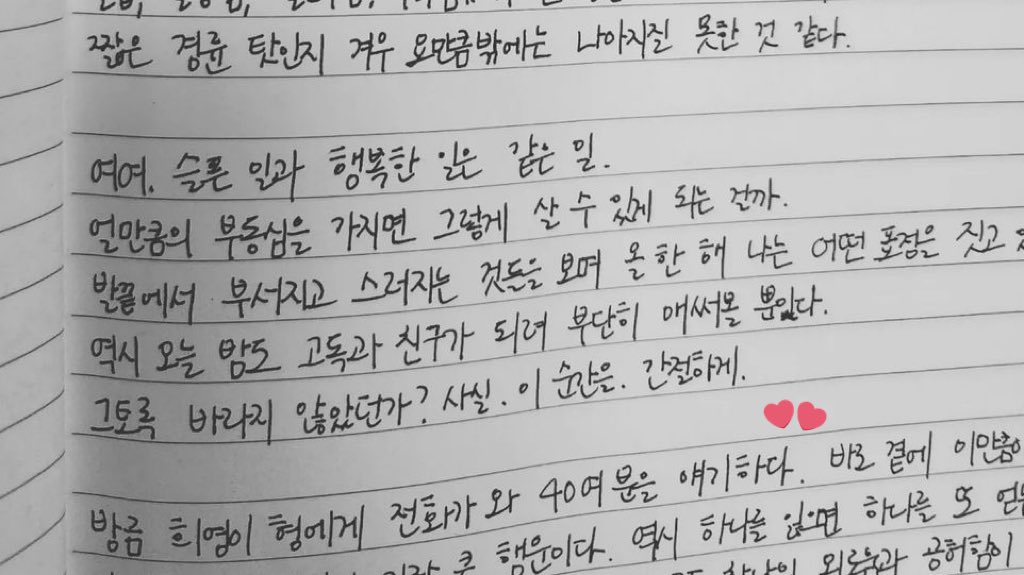 짧은 경륜 탓인지 겨우 요만큼밖에는 나아지질 못한 것 같다.
여여. 슬픈 일과 행복한 일은 같은 일.
얼만큼의 부동심을 가지면 그렇게 살 수 있게 되는 걸까.
발끝에서 부서지고 스러지는 것들을 보며 올 한 해 나는 어떤 표정을 짓고
역시 오늘 밤도 고독과 친구가 되려 부단히 애써볼 뿐이다.
그토록 바라지 않았던가? 사실. 이 순간을. 간절하게.
방금 희영이 형에게 전화가 와 40여 분을 얘기하다. 바로 곁에 이만큼이
큰 행운이다. 역시 하나를 잃으면 하나를 또
외로움과 공허함이